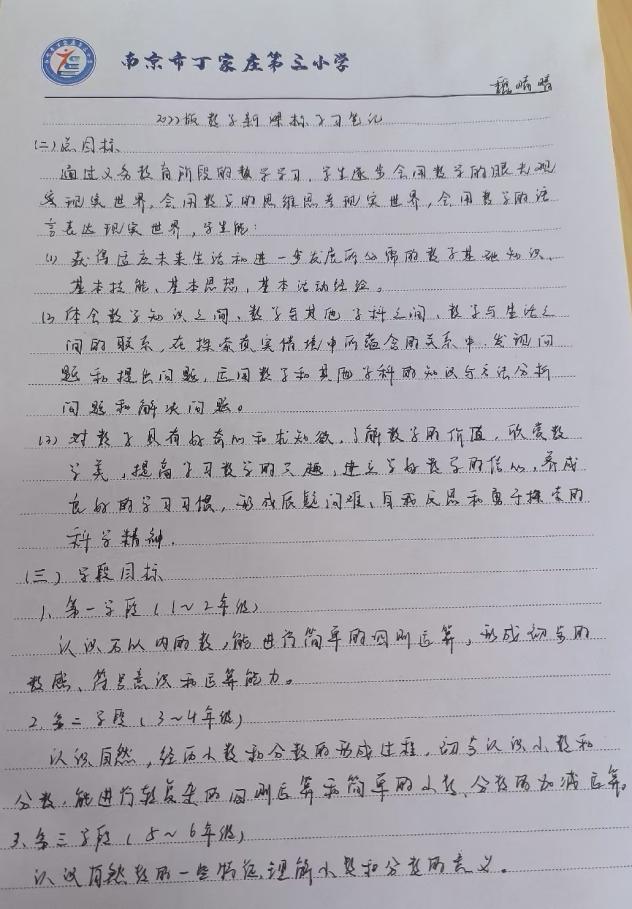 南京市丁家庄第三小学
魏晴晴
2022版数学新课标学习笔记
(二)总目标
通过义务教育阶段的数学学习,学生逐步会用数学的眼光观
察现实世界,会用数学的思维思考现实世界,会用数学的语
言表达现实世界,学生能:
(1) 获得适应未来生活和进一步发展所必需的数学基础知识、
基本技能、基本思想、基本活动经验。
(2) 体会数学知识之间、数学与其他学科之间、数学与生活之
间的联系,在探索真实情境中所蕴含的关系中,发现问
题和提出问题,运用数学和其他学科的知识与方法分析
问题和解决问题。
(3) 对数学具有好奇心和求知欲,了解数学的价值,欣赏数
学美,提高学习数学的兴趣,建立学好数学的信心,养成
良好的学习习惯,形成质疑问难、自我反思和勇于探索的
科学精神.
(三)学段目标
1、第一学段(1~2年级)
认识万以内的数,能进行简单的四则运算,形成初步的
数感、符号意识和运算能力。
2、第二学段(3~4年级)
认识自然,经历小数和分数的形成过程,初步认识小数和
分数,能进行较复杂的四则运算和简单的小数、分数的加减运算。
3、第三学段(5~6年级)
认识自然数的一些特征,理解小数和分数的意义。